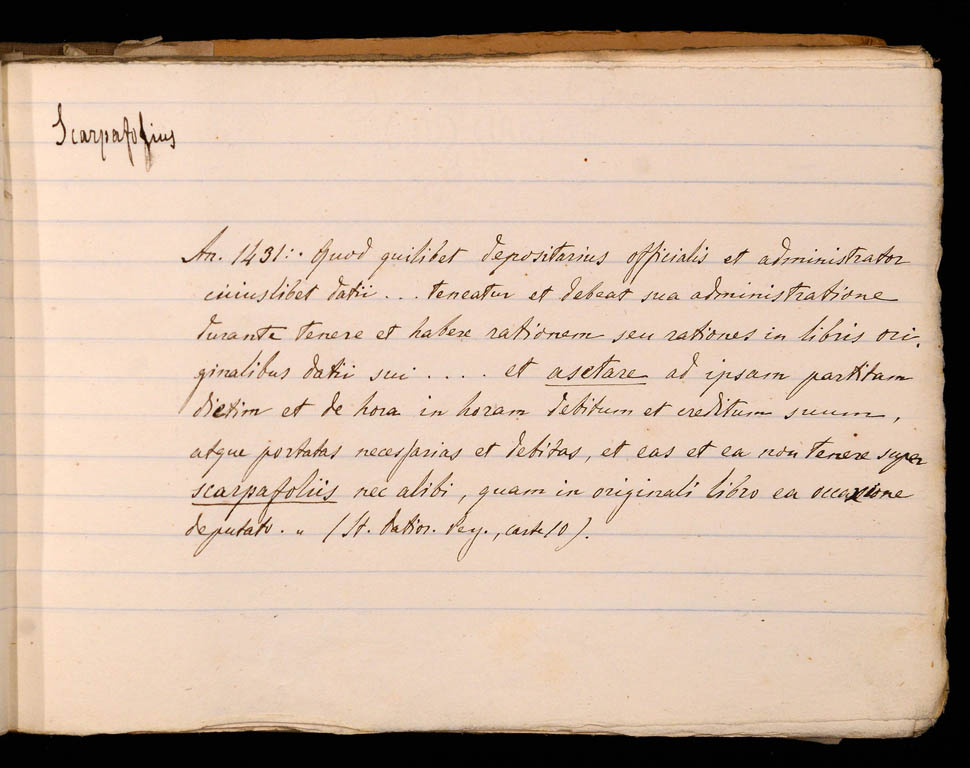 Scarpafolius
An. 1431: Quod quilibet depositarius officialis et administrator
cuiuslibet datii . . . teneatur et debeat sua administratione
durante tenere et habere rationem seu rationes in libris ori-
ginalibus datii sui . . . . et asetare ad ipsam partitam
dietim et de hora in horam debitum et creditum suum,
atque portatas necessarias et debitas, et eas et ea non tenere super
scarpafoliis nec alibi, quam in originali libro ea occaxione
deputato. „ (St. datior. reg., carte 10).